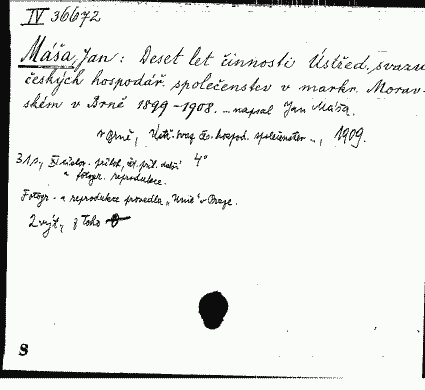 IV 36672
Máša, Jan: Deset let činnosti Ústřed. svazu
českých hospodář. společenstev v markr. Morav-
ském v Brně 1899-1908. ... napsal Jan Máša.
v Brně, Ústř. svaz čes. hospod. společenstev .., 1909.
31 s., XI číslov. příloh, 4°
a fotogr. reprodukce.
Fotogr. a reprodukce provedla "Unie" v Praze.
2 výt., z toho
8